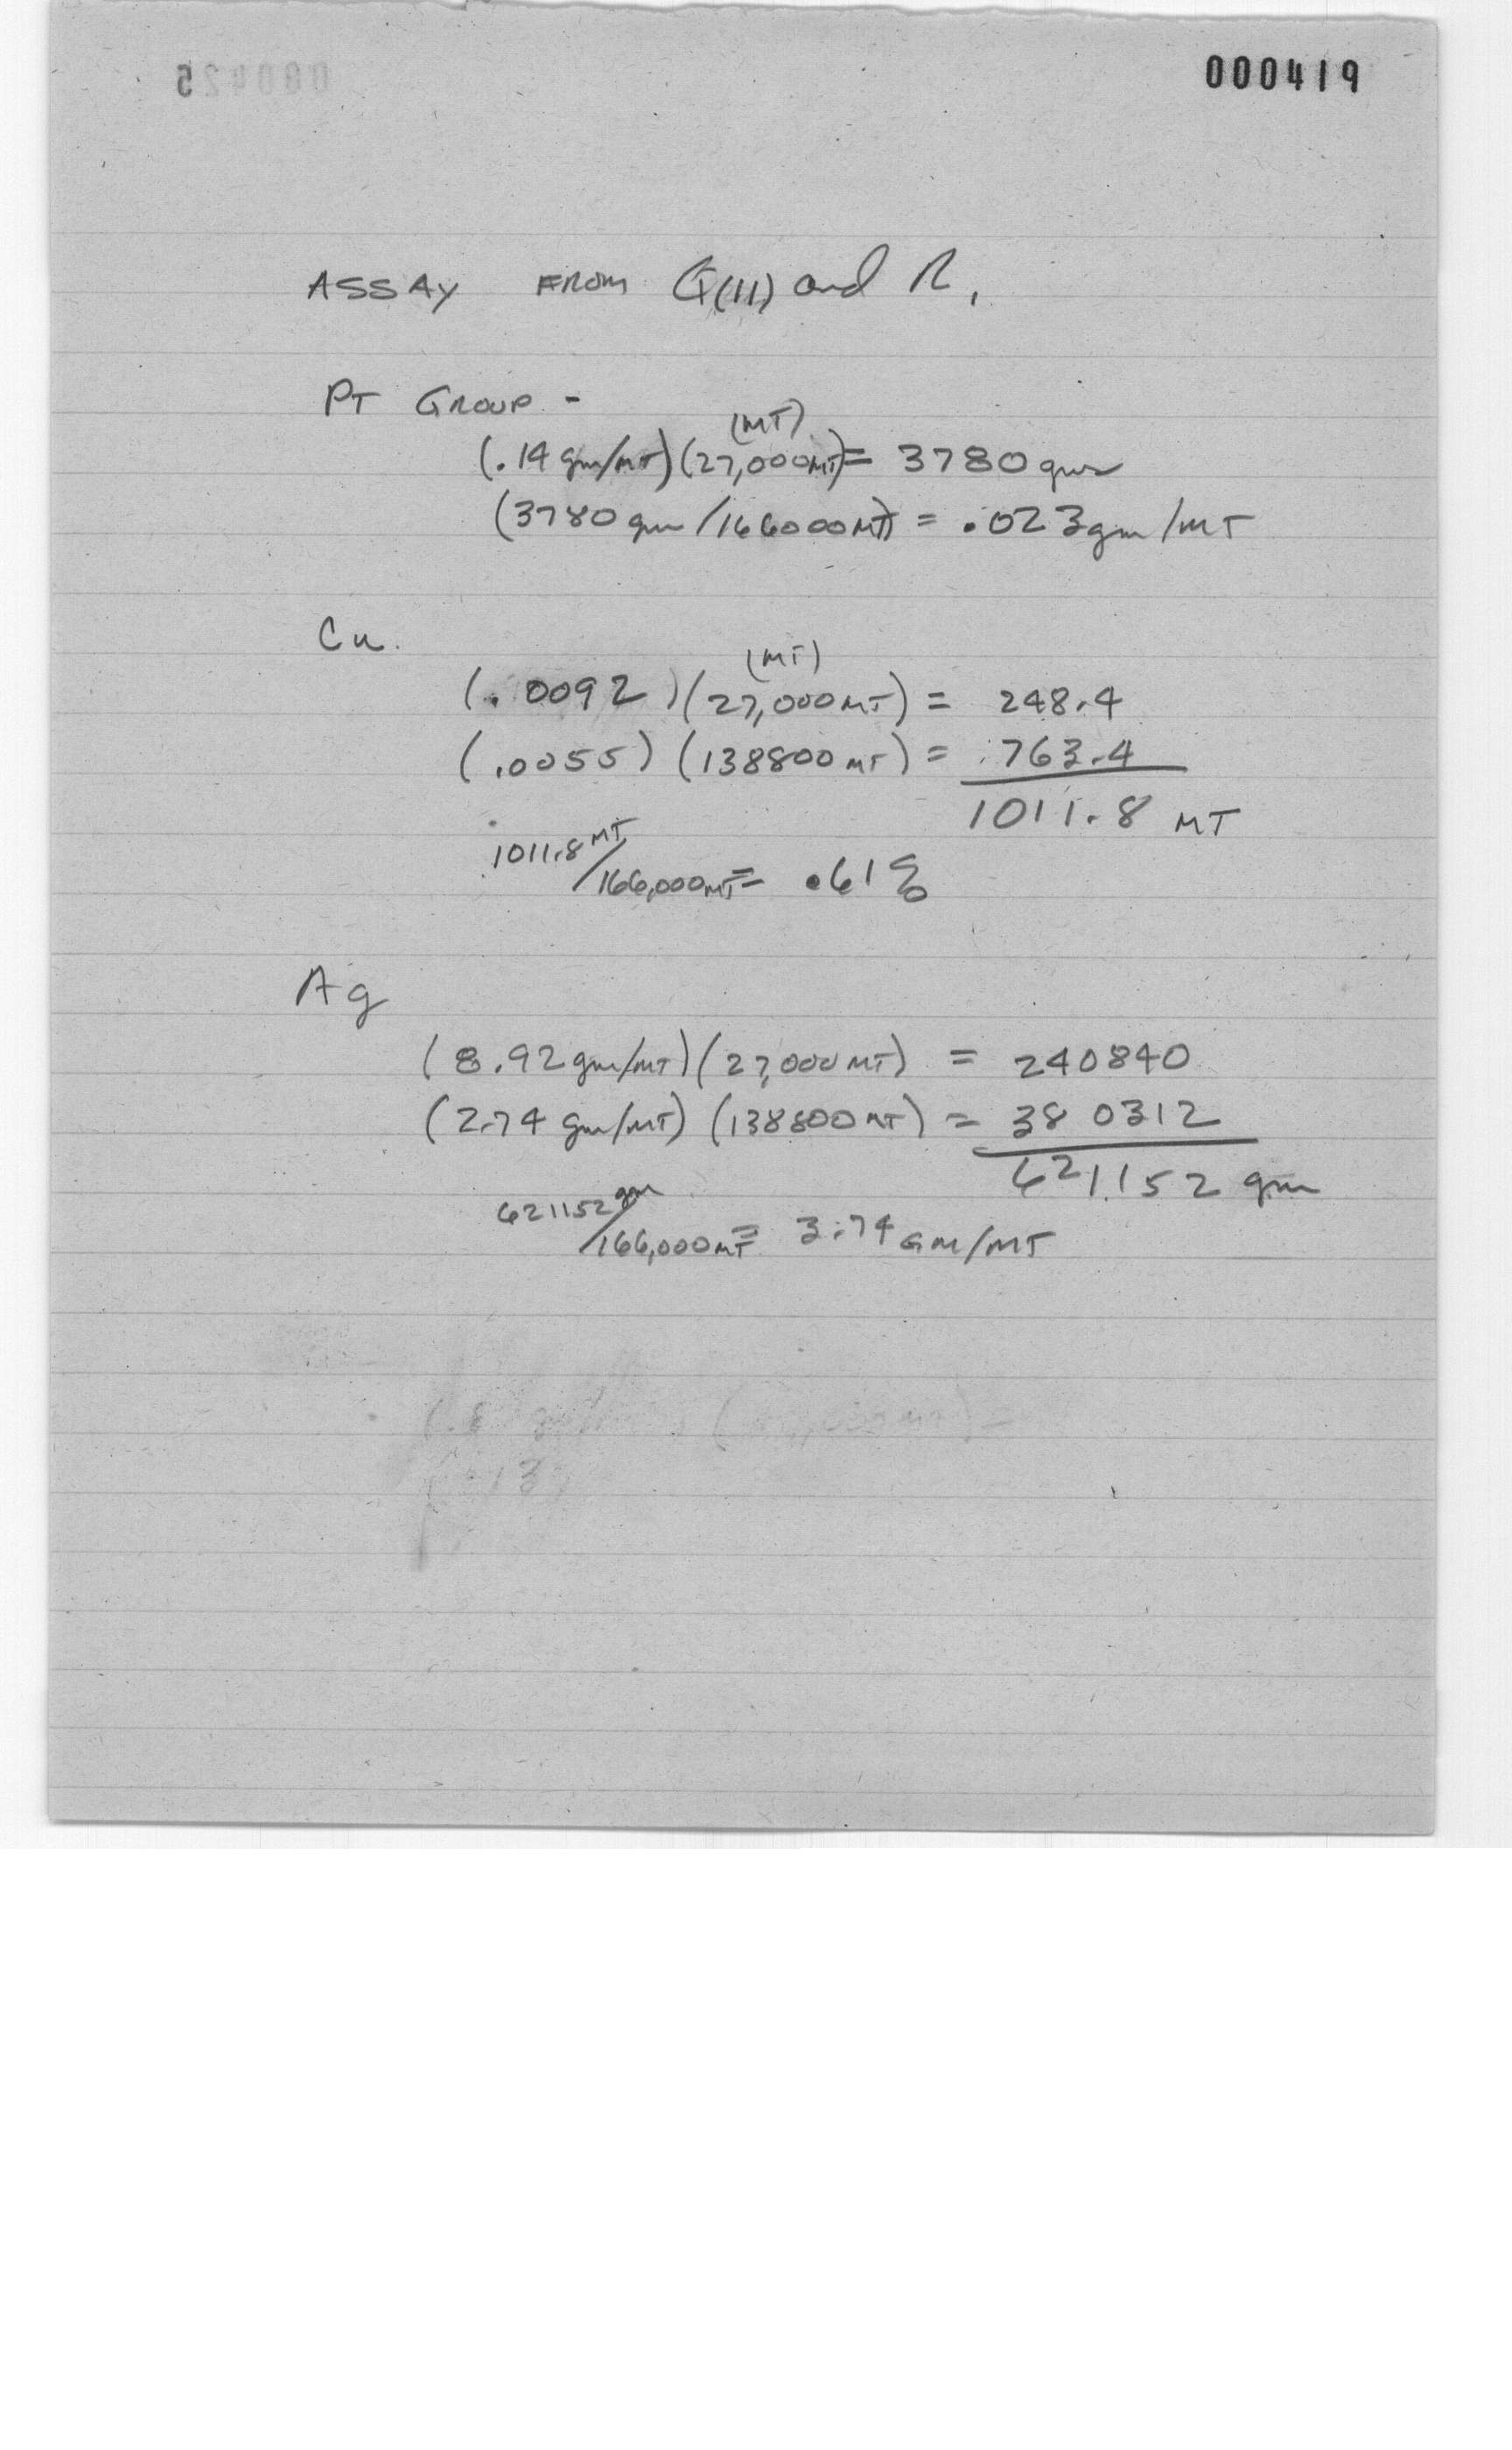 000419
ASSAY FROM G(11) and R,
PT GROUP -
(MT)
(.14 gm/MT)(27,000MT)= 3780 gms
(3780 gm/166000MT) = .023gm/MT
Cu.
(MT)
(.0092)(27,000MT) = 248.4
(.0055) (138800 MT) = 763.4
1011.8 MT
1011.8 MT/166,000MT= .61%
Ag
(8.92 gm/MT)(27,000 MT) = 240840
(2.74 gm/MT) (138800MT) = 380312
621152 gm
621152 gm/166,000MT= 3.74 GM/MT